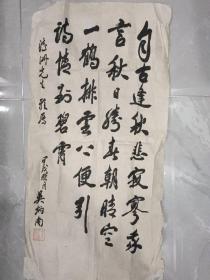 自古逢秋悲寂寥我
言秋日胜春朝晴空
一鹤排云上便引
诗情到碧霄
先生雅属
吴炳南